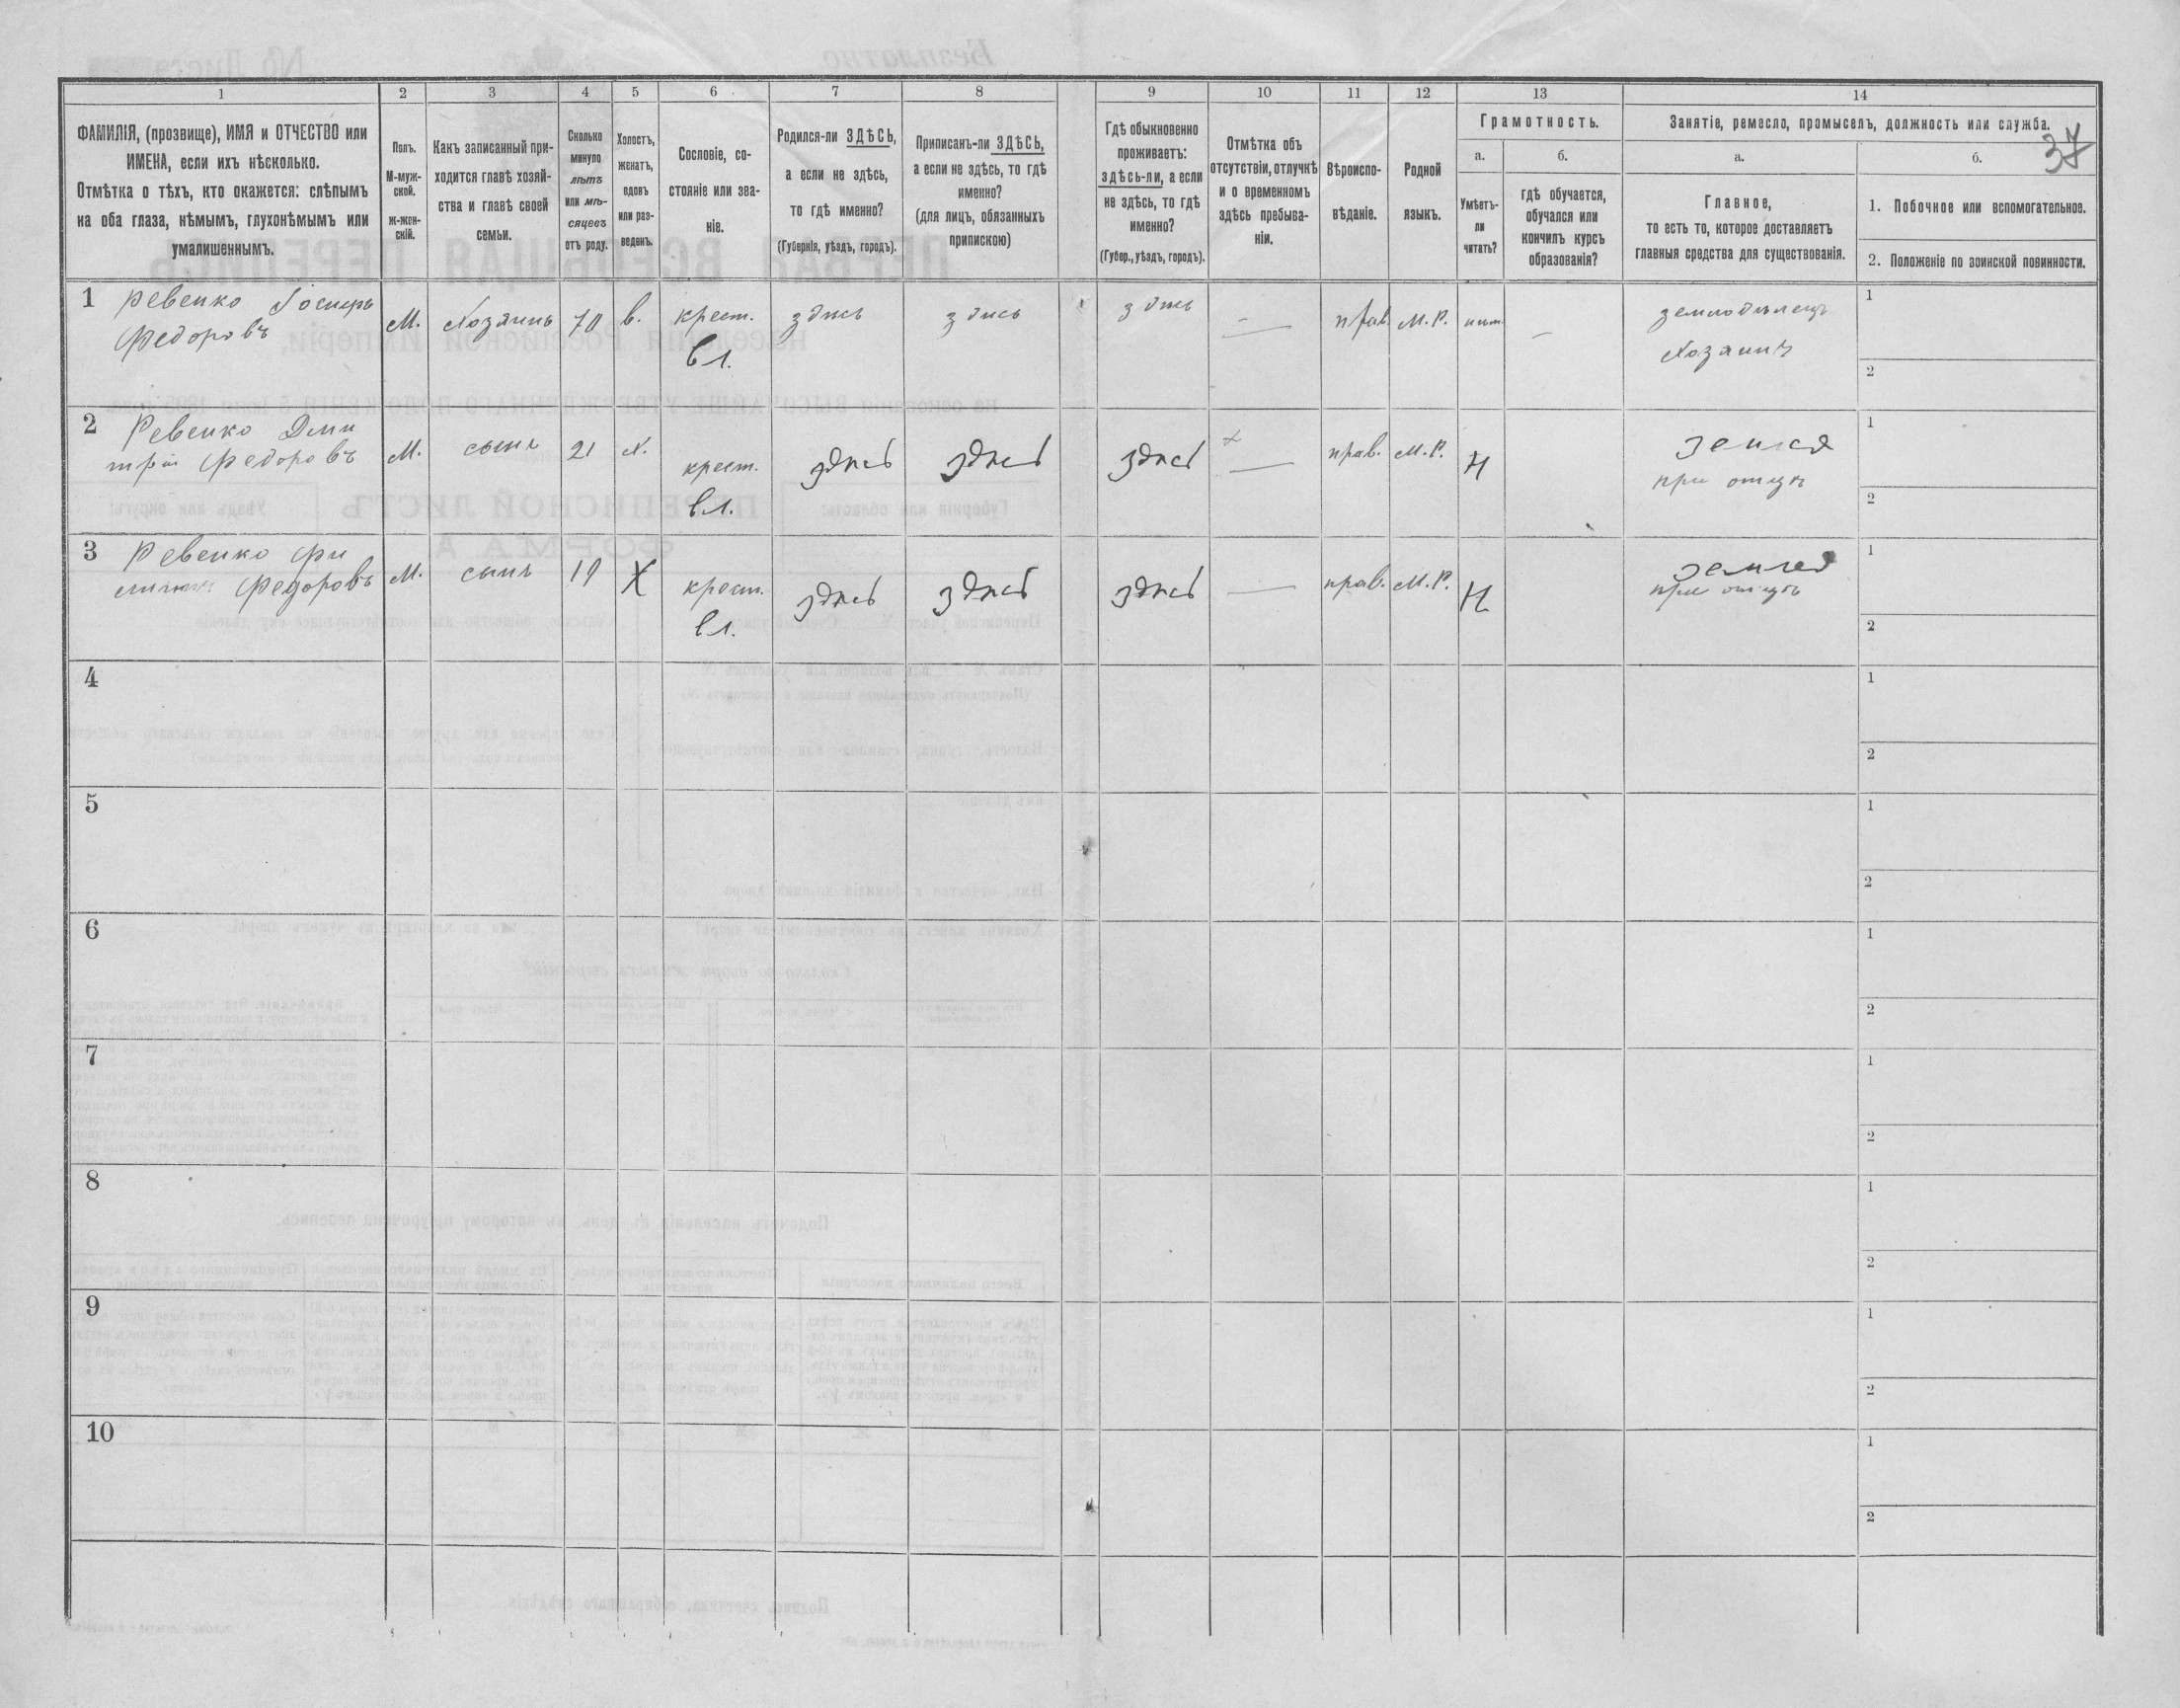 1
2
3
4
5
6
7
8
9
10
11
12
13
14
ФАМИЛІЯ, (прозвище), ИМЯ и ОТЧЕСТВО или
ИМЕНА, если ихъ нѣсколько.
Отмѣтка о тѣхъ, кто окажется: слѣпымъ
на оба глаза, нѣмымъ, глухонѣмымъ или
умалишеннымъ.
Полъ.
М-муж-
ской.
Ж-жен-
скій.
Какъ записанный при-
ходится главѣ хозяй-
ства и главѣ своей
семьи.
Сколько
минуло
лѣтъ
или мѣ-
сяцевъ
отъ роду.
Холостъ,
женатъ,
вдовъ
или раз-
веденъ.
Сословіе, со-
стояніе или зва-
ніе.
Родился-ли ЗДѢСЬ,
а если не здѣсь,
то гдѣ именно?
(Губернія, уѣздъ, городъ).
Приписанъ-ли ЗДѢСЬ,
а если не здѣсь, то гдѣ
именно?
(для лицъ, обязанныхъ
припискою)
Гдѣ обыкновенно
проживаетъ:
здѣсь-ли, а если
не здѣсь, то гдѣ
именно?
(Губер., уѣздъ, городъ).
Отмѣтка объ
отсутствіи, отлучкѣ
и о временномъ
здѣсь пребыва-
ніи.
Вѣроиспо-
вѣданіе.
Родной
языкъ.
Грамотность.
а.
Умѣетъ-
ли
читать?
б.
гдѣ обучается,
обучался или
кончилъ курсъ
образованія?
Занятіе, ремесло, промыселъ, должность или служба.
37
а.
Главное,
то есть то, которое доставляетъ
главныя средства для существованія.
б.
1. Побочное или вспомогательное.
2. Положеніе по воинской повинности.
1 Ревенко
Федоровъ
М.
Хозяинъ
70
в.
крест.
вл.
здѣсь
здѣсь
здѣсь
—
прав.
М.Р.
нѣт.
—
земледѣлецъ
хозяинъ
1
2
2 Ревенко Дми
трій Федоровъ
М.
сынъ
21
х.
крест.
вл.
здѣсь
здѣсь
здѣсь
—
прав.
М.Р.
Н
земля
при отцѣ
1
2
3 Ревенко Фи
Федоровъ
М.
сынъ
19
Х
крест.
вл.
здѣсь
здѣсь
здѣсь
—
прав.
М.Р.
Н
земля
при отцѣ
1
2
4
1
2
5
1
2
6
1
2
7
1
2
8
1
2
9
1
2
10
1
2